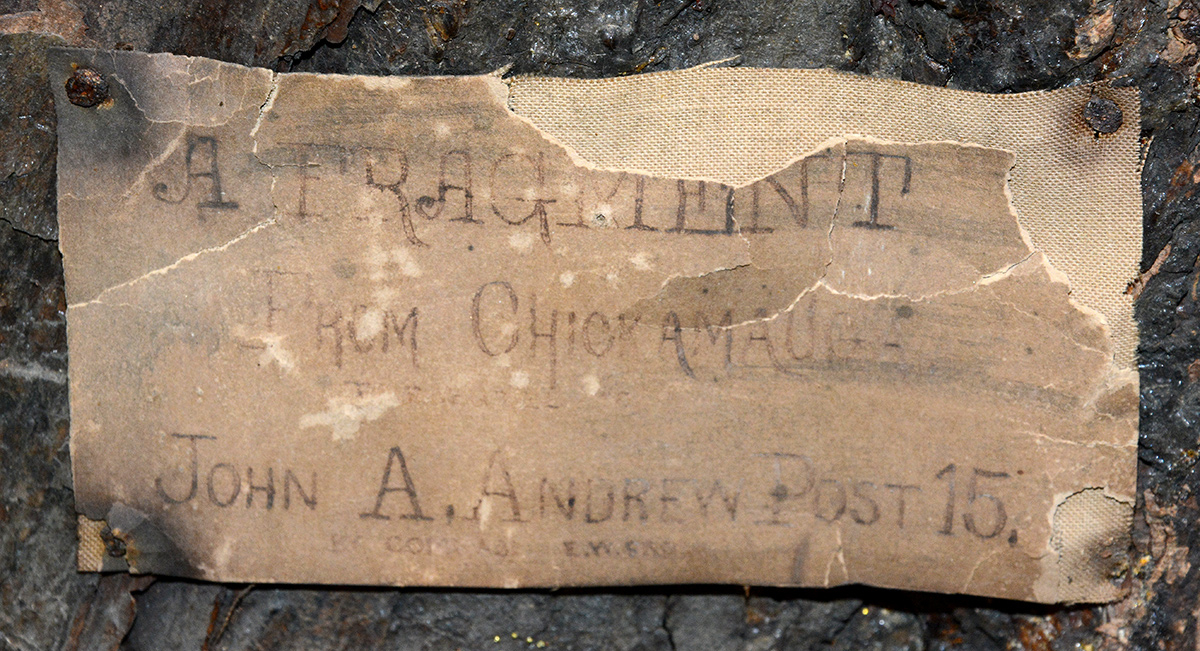 A FRAGMENT
FROM CHICKAMAUGA
JOHN A. ANDREW POST 15.
E.W.